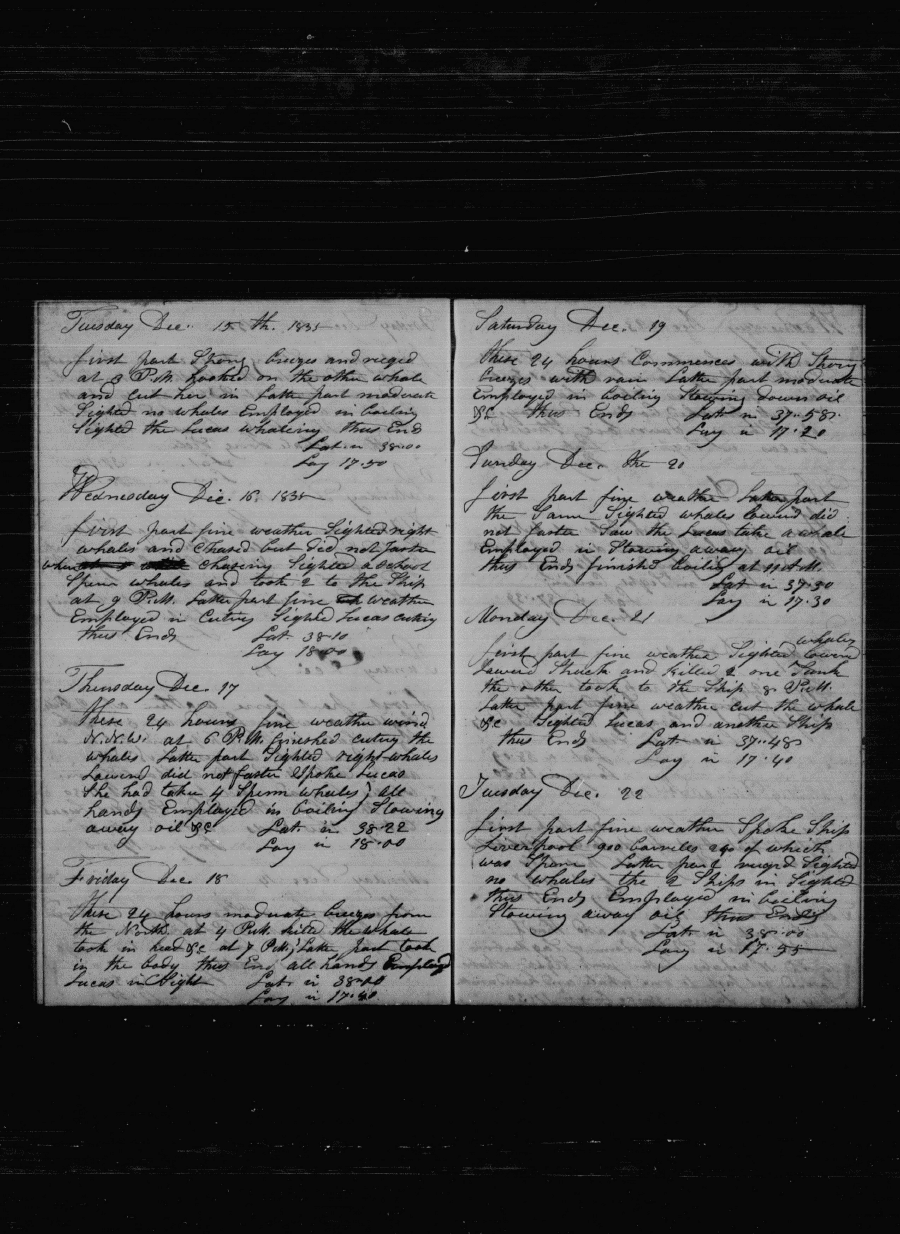 Tuesday Dec. 15 th. 1835
first part Strong breezes and ruged
at 3 P.M. hooked on the other whale
and cut her in Latter part moderate
Sighted no whales Employed in boiling
Sighted the Lucas whaleing thus End
Lat in 38.00
Log 17.50
Wednesday Dec. 16, 1835
first part fine weather Sighted right
whales and Chased but did not fasten
when chasing Sighted a School
Sperm whales and took 2 to the Ship
at 9 P.M. Latter part fine weather
Employed in Cuting Sighted Lucas cuting
thus Ends Lat. 38.10
Log 18.00
Thursday Dec. 17
These 24 hours fine weather wind
N.N.W. at 6 P.M. finished cuting the
whales Latter part Sighted right whales
Lowerd did not fasten Spoke Lucas
She had taken 4 Sperm whales; all
hands Employed in boiling Stowing
away oil &c Lat. in 38.22
Log in 18.00
Friday Dec. 18
These 24 hours moderate breezes from
the North at 4 P.M. killed the whale
took in head &c at 7 P.M. Latter part took
in the body thus End all hands Employd
Lucas in Sight Lat. in 38.00
Log in 17.40
Saturday Dec. 19
These 24 hours Commences with Strong
breezes with rain Latter part moderate
Employed in boiling Stowing down oil
&c thus Ends Lat in 37.58
Log in 17.20
Sunday Dec. the 20
first part fine weather Latter part
the Same Sighted whales lowerd did
not fasten Saw the Lucas take a whale
Employed in Stowing away oil
thus Ends finished boiling at 11 A.M.
Lat in 37.30
Log in 17.30
Monday Dec. 21
whales
first part fine weather Sighted lowerd
Lowerd Struck and killed 2 one Sunk
the other took to the Ship 8 P.M.
Latter part fine weather cut the whale
&c Sighted Lucas and another Ship
thus Ends Lat in 37.48
Log in 17.40
Tuesday Dec. 22
First part fine weather Spoke Ship
Liverpool 900 barreles 240 of which
was Sperm Latter part ruged Sighted
no whales the 2 Ships in Sighted
thus Ends Employed in boiling
Stowing away oil thus Ends
Lat in 38.00
Log in 17.55